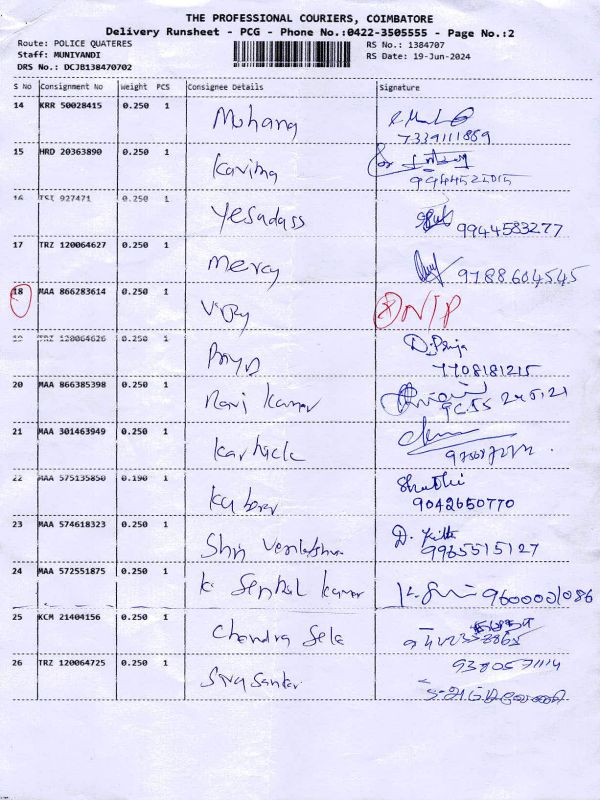 THE PROFESSIONAL COURIERS, COIMBATORE
Delivery Runsheet - PCG - Phone No.:0422-3505555 - Page No.:2
Route: POLICE QUATERES RS No.: 1384707
Staff: MUNIYANDI RS Date: 19-Jun-2024
DRS No.: DCJB138470702
S No Consignment No Weight PCS Consignee Details Signature
14 KRR 50028415 0.250 1 Mohang
7339111869
15 HRD 20363890 0.250 1 Kavima
16 TSI 927471 0.250 1 Yesudass
9944583277
17 TRZ 120064627 0.250 1 Mercy
9788604545
18 MAA 866283614 0.250 1
19 TRZ 120064626 0.250 1 D. Priya
7708181215
20 MAA 866385398 0.250 1 Navi Kumar
21 MAA 301463949 0.250 1 Karthick
22 MAA 575135850 0.190 1 Shakthi
9042650770
23 MAA 574618323 0.250 1 Shri
9965515127
24 MAA 572551875 0.250 1 K Senthil Kumar 9600001086
25 KCM 21404156 0.250 1 Chendra Sele
26 TRZ 120064725 0.250 1 Sivasankar 9380571114